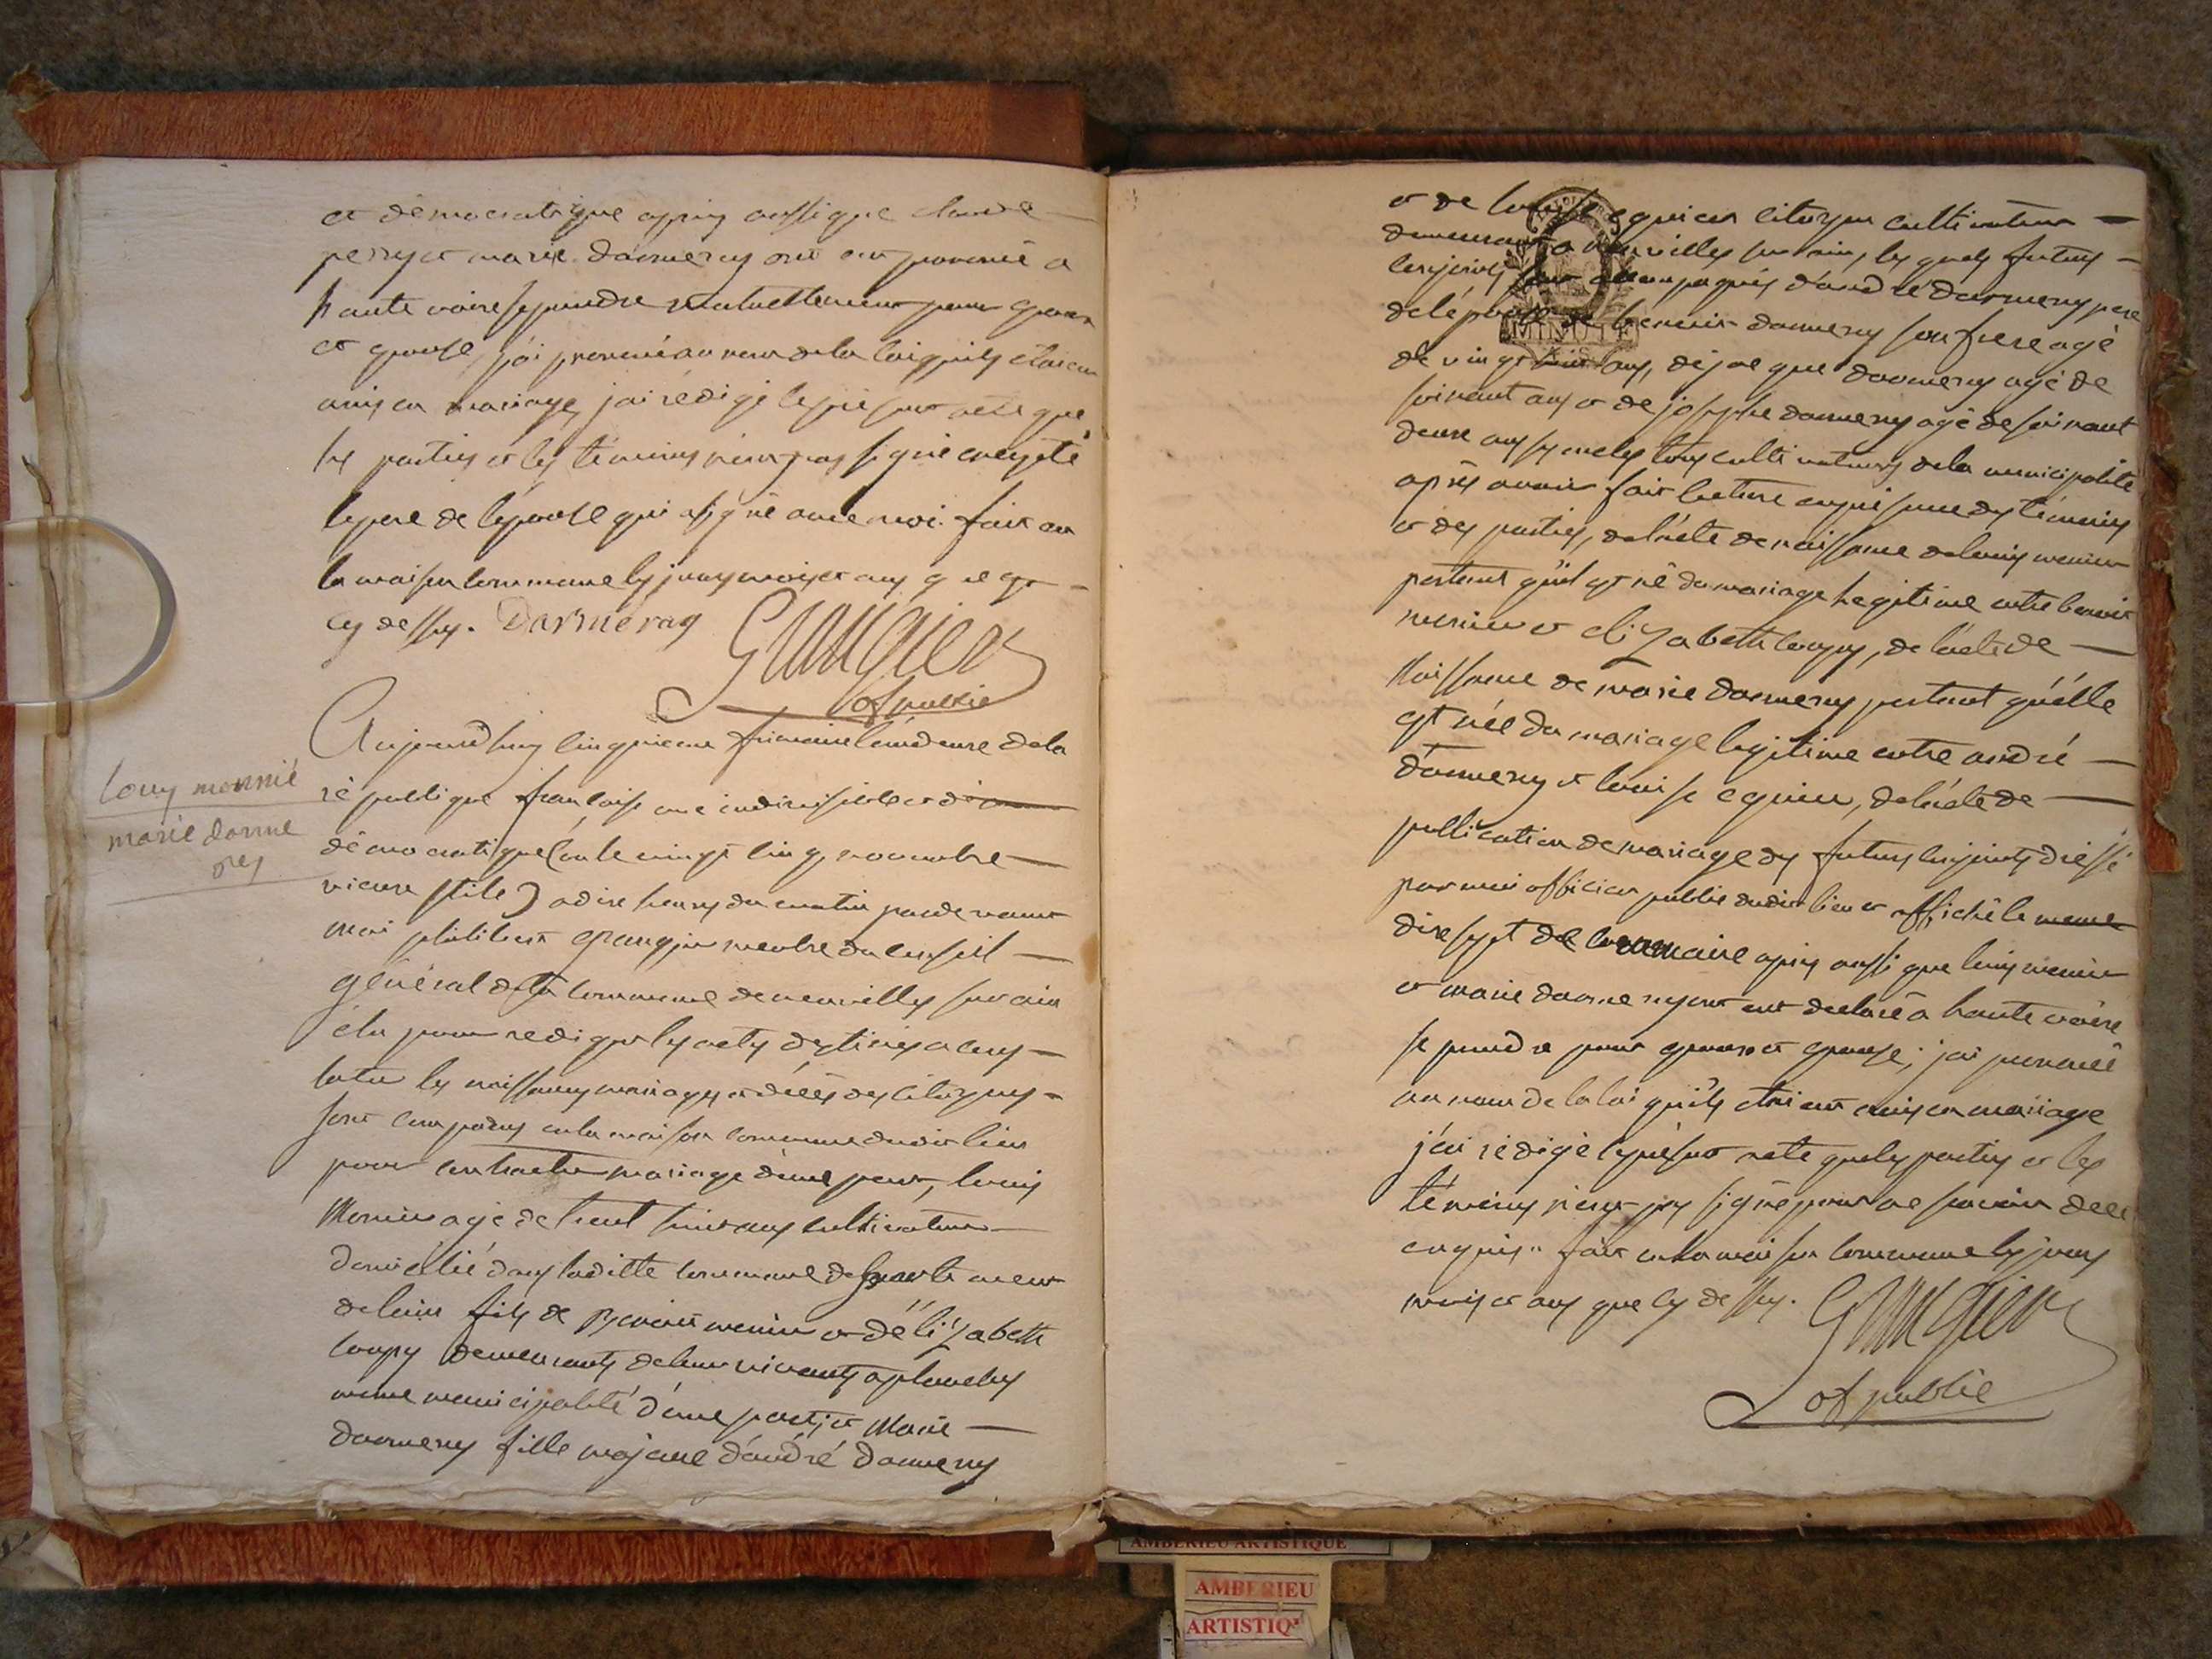 et démocratique apres aussi que claude
perry et marie darmeray ont eut prononcé a
haute voire se prendre mutuellement pour epoux
et epouse, j'ai prononcé au nom de la loi quils étoient
unis en mariage, j'ai rédigé le présent acte que
les parties et les témoins n'ont pas signé excepté
le pere de l'épouse qui a signé avec moi. fait en
la maison commune les jours mois et ans que
cy dessus. Darmeray Grangier
of public
Aujourdhuy cinquieme frimaire l'an deuxe de la
république francaise une indivisible et
démocratique (ou le vingt cinq novembre
vieux stile) a dix heures du matin par devant
moi philibert grangier membre du conseil
général de la commune de neuville sur ain
élu pour rediger les actes destinés a cons-
tater les naissances mariages et décès des citoyens
sont comparus en la maison commune dudit lieu
pour contracter mariage d'une part, louis
Monier agé de trent huit ans cultivateur
domicilié dans laditte commune departement
de lain fils de Benoit monier et déélizabeth
loupy demeurants de leur vivants a planches
meme municipalité d'une part, et Marie
darmeray fille majeure d'andré darmeray
louy monnié
marie darme
rey
et de louise eguier citoyen cultivateur
demeurant a neuville sur ain, les quels futurs
conjoints sont accompagnés d'andré darmeray pere
de l'épouse de benoit darmeray son frere agé
de vingt huit ans, de jacque darmeray agé de
soixant ans et de josephe darmeray agé de soixant
deuxe ans tous cultivateurs de la municipalité
après avoir fait lecture en présence des témoins
et des parties, de l'acte de naissance de louis monier
portant qu'il est né du mariage legitime entre benoit
monier et elizabeth loupy, de l'acte de
Naissance de marie darmeray portant qu'elle
est née du mariage legitime entre andré
darmeray et louise eguier, de l'acte de
publication de mariage des futurs conjoints dréssé
par moi officier public dudit lieu et affiché le
dixsept de brumaire apres aussi que louis monier
et marie darmeray ont eut declaré a haute voire
se prendre pour epoux et epouse; j'ai prononcé
au nom de la loi qu'ils etoient unis en mariage
j'ai rédigé le présent acte que les parties et les
témoins n'ont pas signé pour ne savoir de ce
enquis. fait en la maison commune les jours
mois et ans que cy dessus. Grangier
of public
MINUTE
AMBERIEU ARTISTIQUE
AMBERIEU
ARTISTIQ